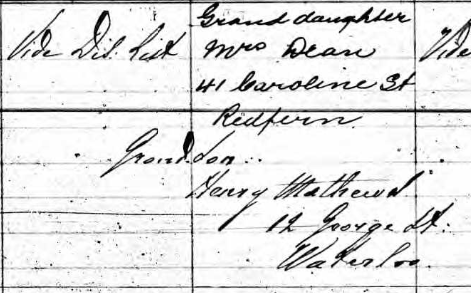 Grand daughter
Vide Dis. List Mrs Dean Vide
41 Caroline St
Redfern
Grand son
Henry Mathews
12 George St.
Waterloo